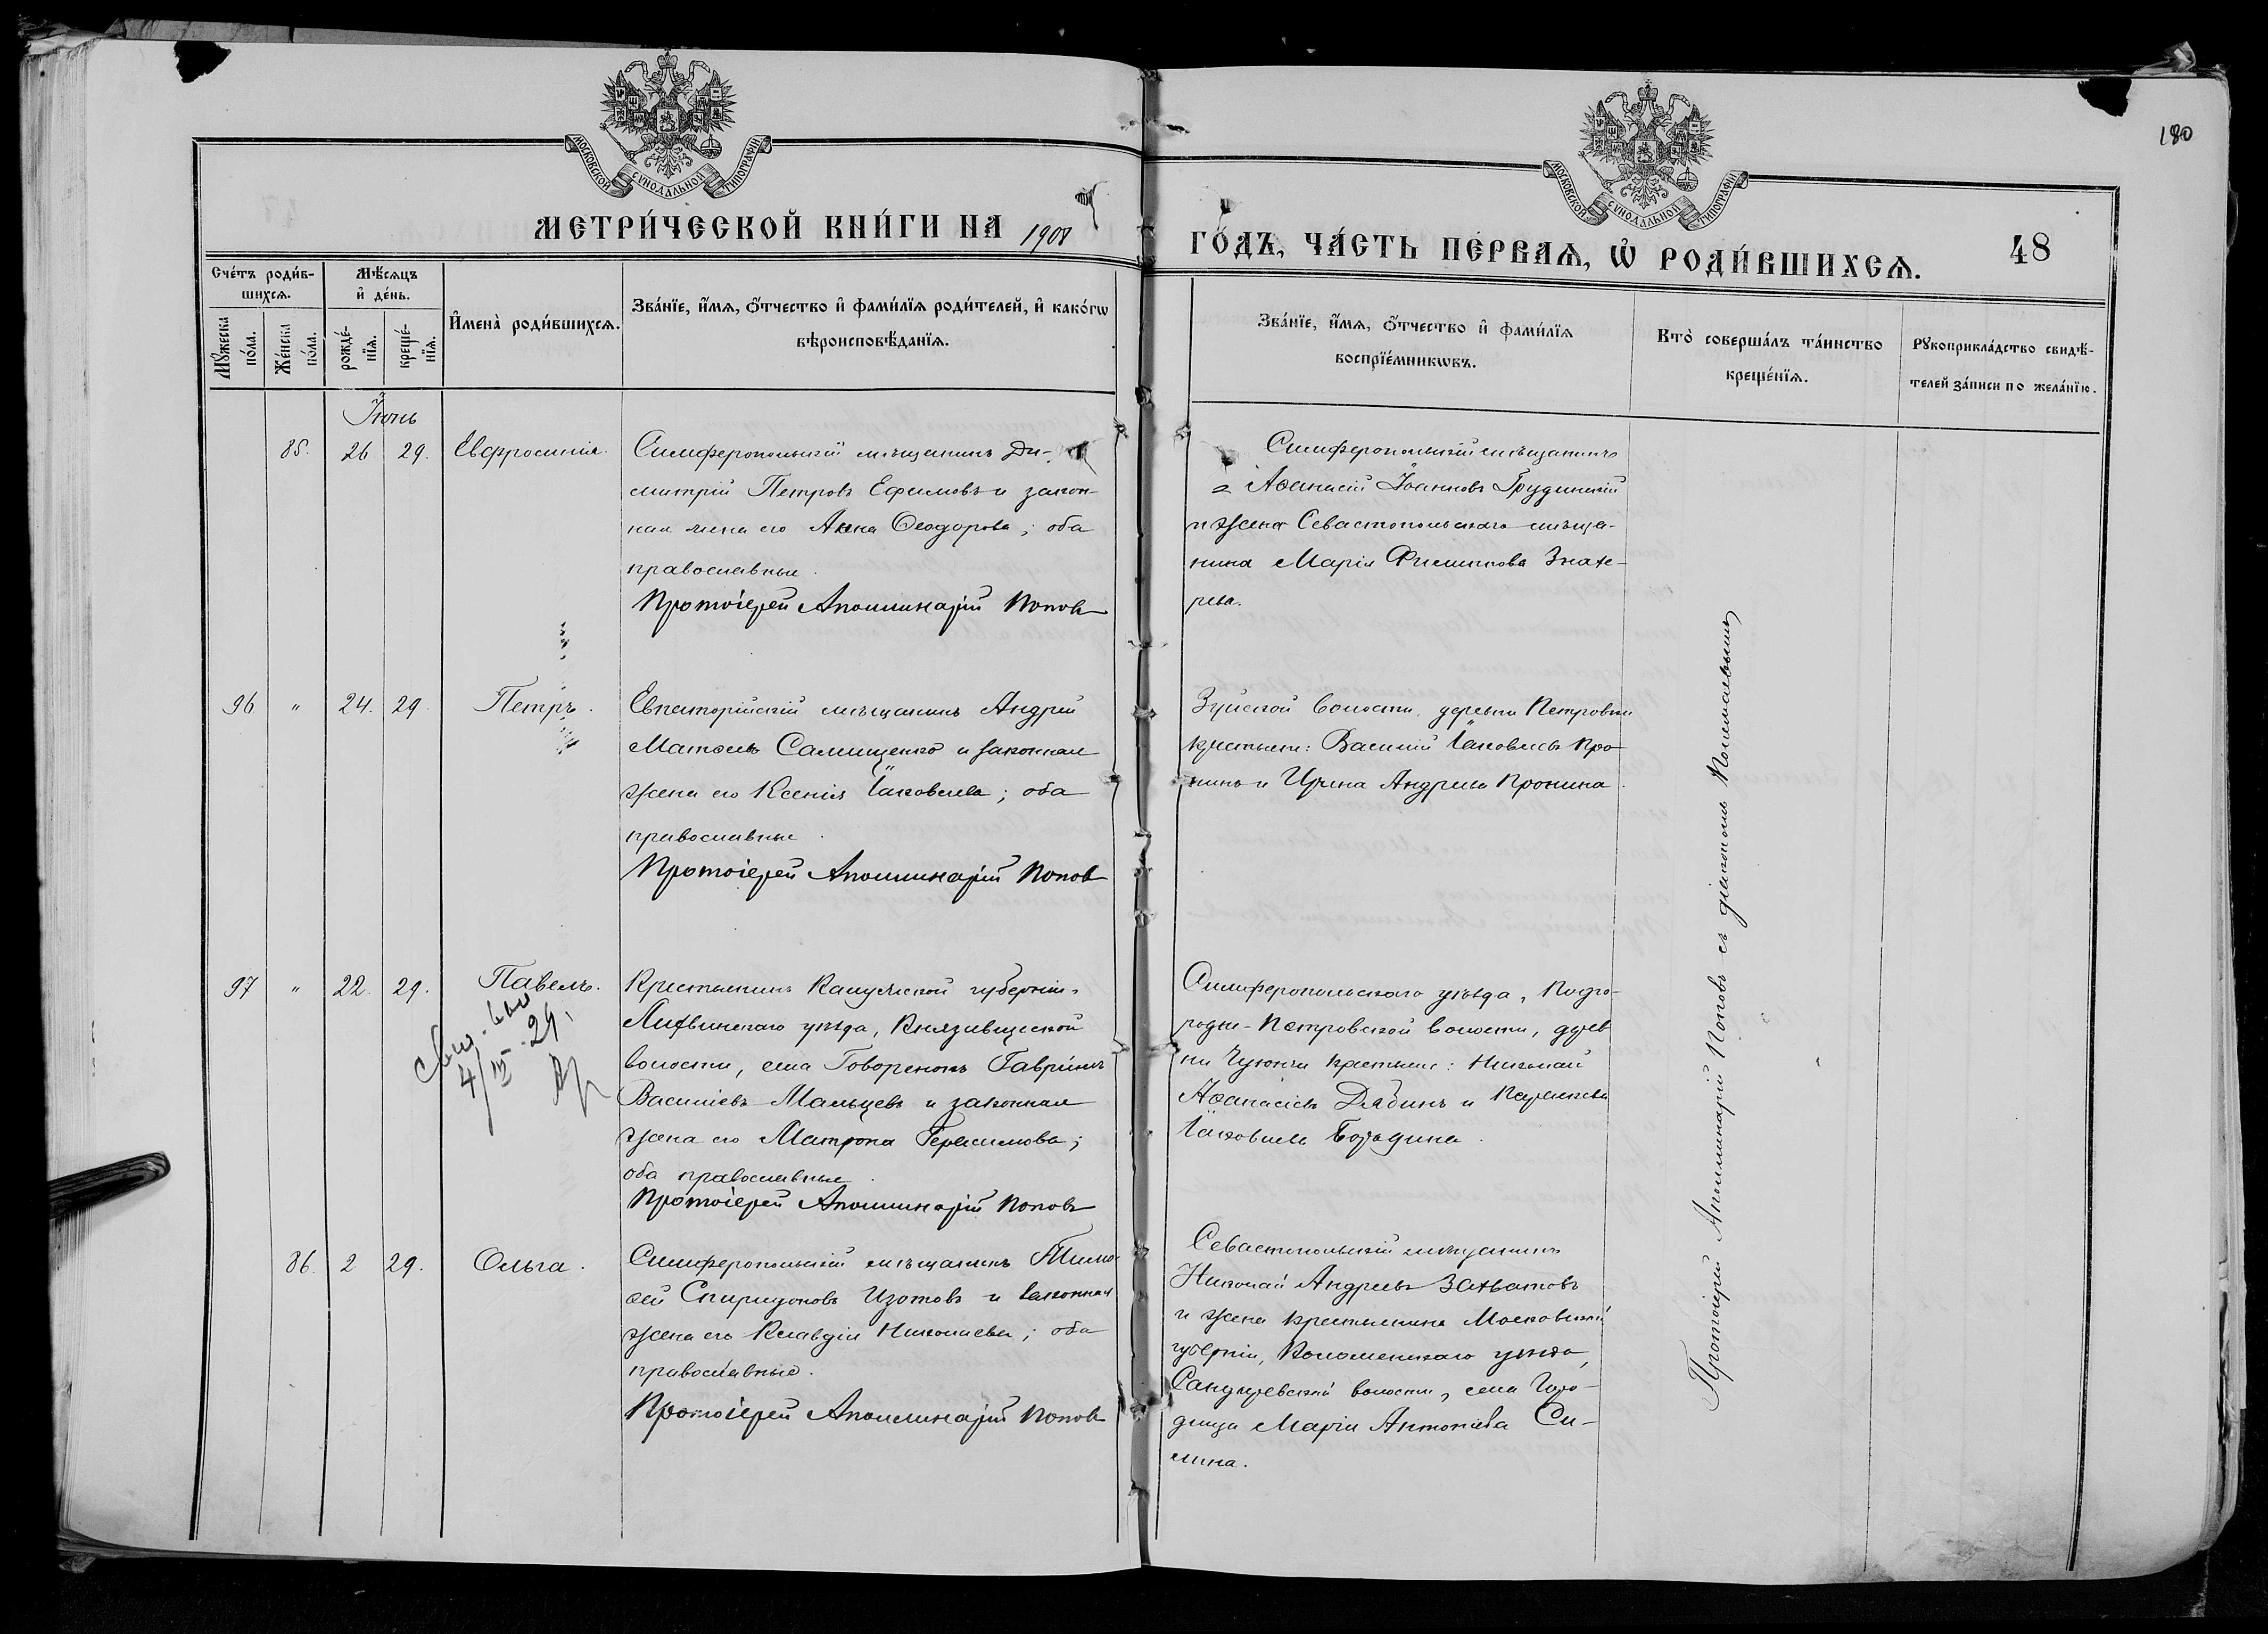 180
МОСКОВСКОЙ СѴНОДАЛЬНОЙ ТИПОГРАФІИ
МОСКОВСКОЙ СѴНОДАЛЬНОЙ ТИПОГРАФІИ
МЕТРИ́ЧЕСКОЙ КНИ́ГИ НА 1908
ГО́ДЪ, ЧА́СТЬ ПЕ́РВАѦ, Ѡ҆ РОДИ́ВШИХСѦ.
48
Сче́тъ роди́в-
шихсѧ.
Мѣ́сѧцъ
и҆ де́нь.
Мꙋ́жеска
по́ла.
Же́нска
по́ла.
рожде́-
нїѧ.
креще́-
нїѧ.
И҆мена̀ роди́вшихсѧ.
Зва́нїе, и҆́мѧ, ѻ҆́тчество и҆ фамі́лїѧ роди́телей, и҆ како́гѡ
вѣроисповѣ́данїѧ.
Зва́нїе, и҆́мѧ, ѻ҆́тчество и҆ фамі́лїѧ
воспрїе́мникѡвъ.
Кто̀ соверша́лъ та́инство
креще́нїѧ.
Рꙋкоприкла́дство свидѣ́-
телей за́писи по жела́нїю.
Іюнь
85. 26 29. Евфросинія.
Симферопольскій мѣщанинъ Ди-
митрій Петровъ Ефимовъ и закон-
ная жена его Анна Ѳеодорова; оба
православные.
Протоіерей Аполлинарій Попов
Симферопольскій мѣщанинъ
Аѳанасій Іоанновъ Грудинскій
и жена Севастопольскаго мѣща-
нина Марія Филиппова Знахе-
рева.
96 " 24. 29. Петръ.
Евпаторійскій мѣщанинъ Андрей
Матѳеевъ Самищенко и законная
жена его Ксенія Іаковлева; оба
православные.
Протоіерей Аполлинарій Попов
Зуйской волости, деревни Петровки
крестьяне: Василій Іаковлевъ Про-
нинъ и Ирина Андреева Пронина.
97 " 22. 29. Павелъ.
4/III-29.
Крестьянинъ Калужской губерніи,
Лихвинскаго уѣзда, Князищевской
волости, села Говоренокъ Гавріилъ
Василіевъ Мальцевъ и законная
жена его Матрона Герасимова;
оба православные.
Протоіерей Аполлинарій Поповъ
Симферопольскаго уѣзда, Подго-
родне-Петровской волости, дерев-
ни Чукончи крестьяне: Николай
Аѳанасіевъ Дябинъ и Параскева
Іаковлева Бородина.
86. 2 29. Ольга.
Симферопольскій мѣщанинъ Тимо-
ѳей Спиридоновъ Изотовъ и законная
жена его Клавдія Николаева; оба
православные.
Протоіерей Аполлинарій Попов
Севастопольскій мѣщанинъ
Николай Андреевъ Захватовъ
и жена крестьянина Московской
губерніи, Коломенскаго уѣзда,
Сандыревской волости, села Горо-
дища Марія Антоніева Си-
лина.
Протоіерей Аполлинарій Поповъ съ діакономъ